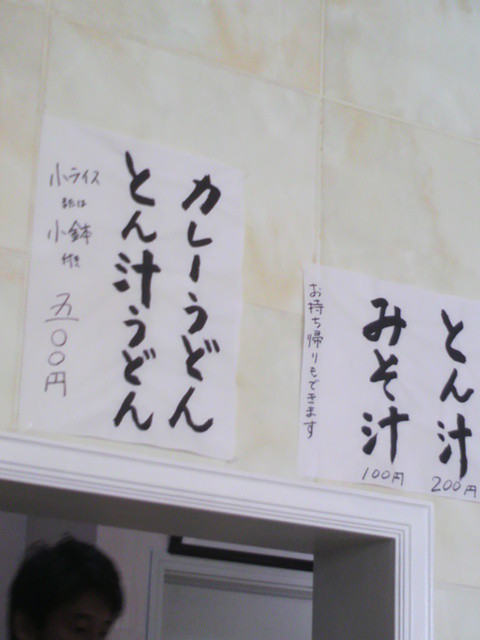 カレーうどん
とん汁うどん
小ライス
または
小鉢
付き
五〇〇円
とん汁
200円
みそ汁
100円
お持ち帰りもできます